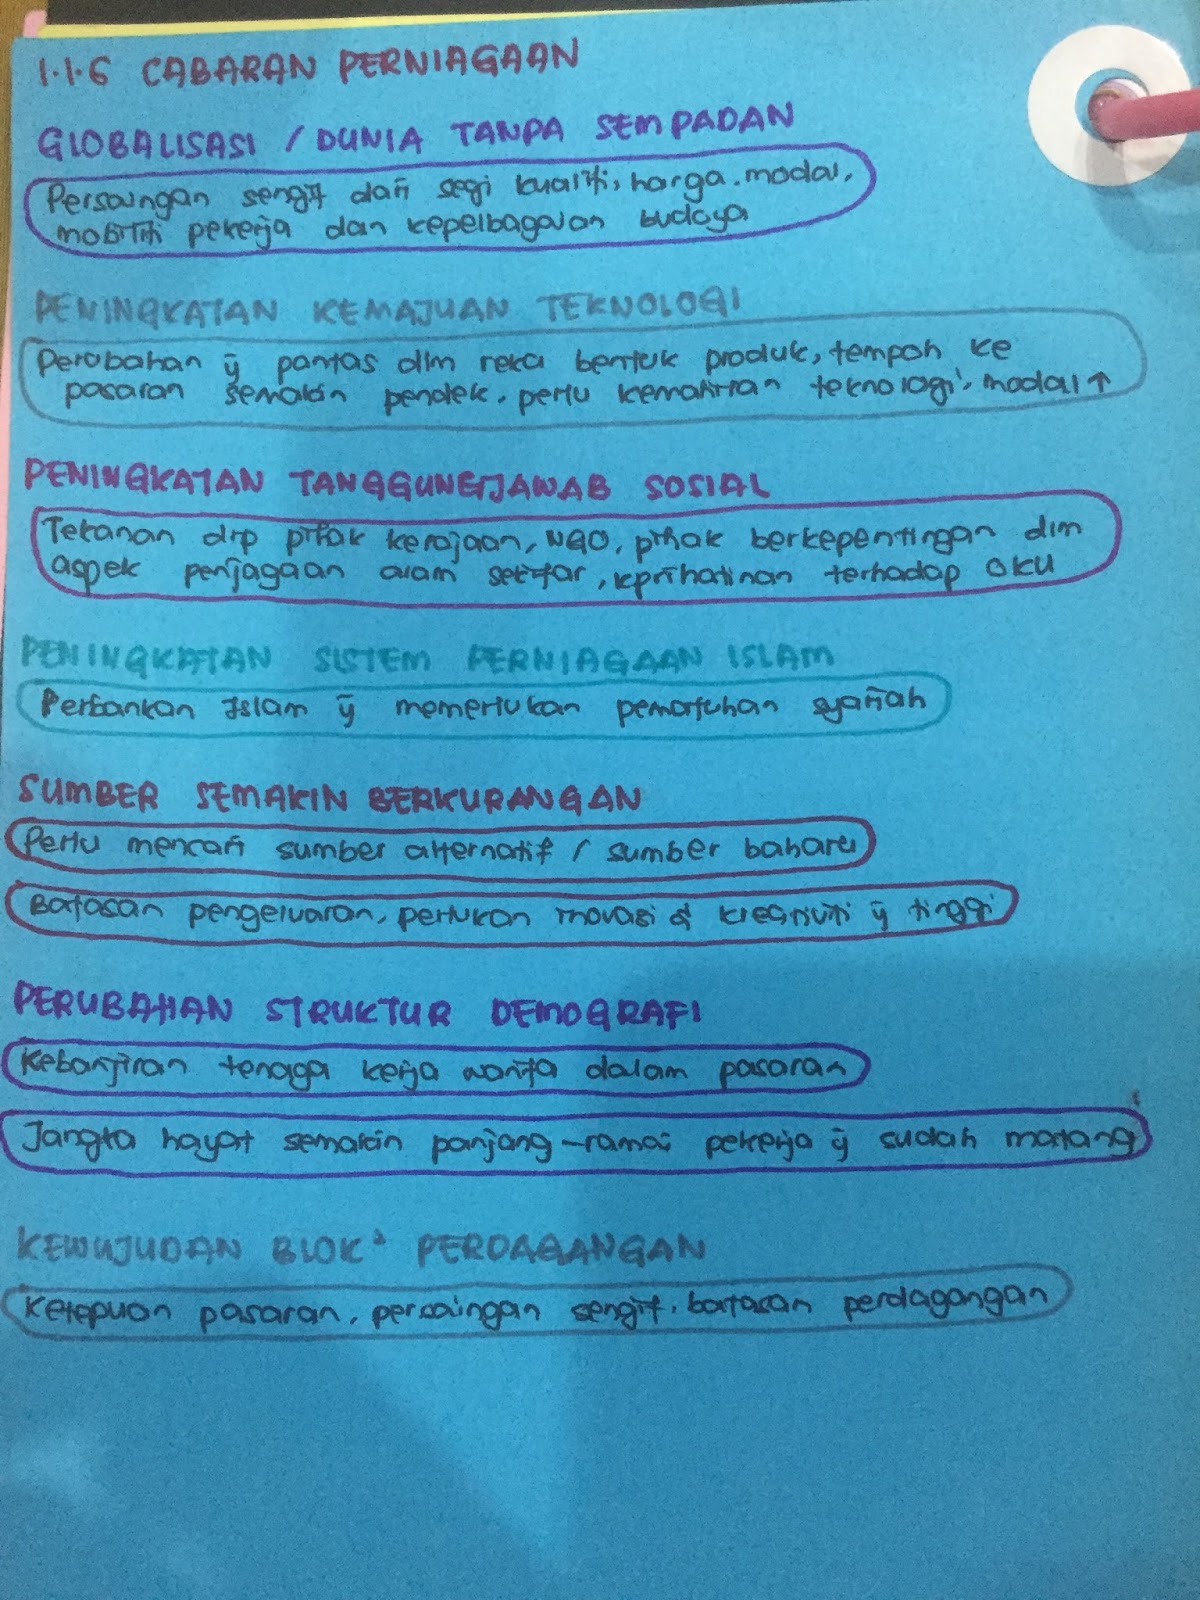 1.1.6 CABARAN PERNIAGAAN
GLOBALISASI / DUNIA TANPA SEMPADAN
Persaingan sengit dari segi kualiti, harga, modal,
mobiliti pekerja dan kepelbagaian budaya
PENINGKATAN KEMAJUAN TEKNOLOGI
Perubahan ȳ pantas dlm reka bentuk produk, tempoh ke
pasaran semakin pendek, perlu kemahiran teknologi, modal ↑
PENINGKATAN TANGGUNGJAWAB SOSIAL
Tekanan drp pihak kerajaan, NGO, pihak berkepentingan dlm
aspek penjagaan alam sekitar, kprihatinan terhadap OKU
PENINGKATAN SISTEM PERNIAGAAN ISLAM
Perbankan Islam ȳ memerlukan pematuhan syariah
SUMBER SEMAKIN BERKURANGAN
Perlu mencari sumber alternatif / sumber baharu
Batasan pengeluaran, perlukan inovasi & kreativiti ȳ tinggi
PERUBAHAN STRUKTUR DEMOGRAFI
Kebanjiran tenaga kerja wanita dalam pasaran
Jangka hayat semakin panjang - ramai pekerja ȳ sudah matang
KEWUJUDAN BLOK² PERDAGANGAN
Ketepuan pasaran, persaingan sengit, batasan perdagangan